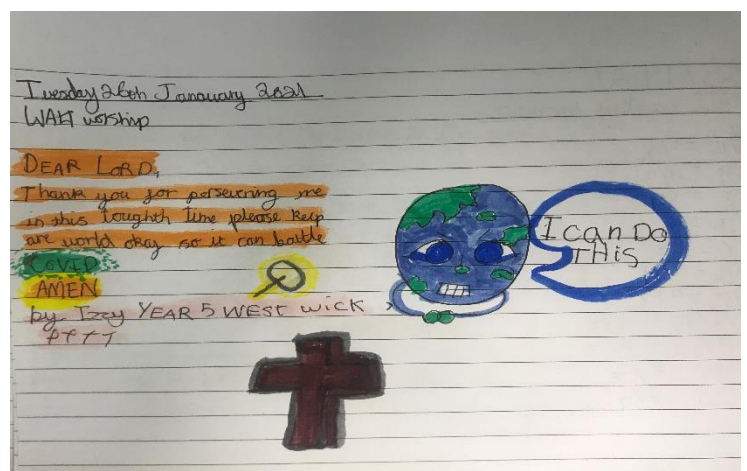 Tuesday 26th Janauary 2021
WALT worship
DEAR LORD,
Thank you for persevering me
in this toughth time please keep
are world okay so it can battle
COVID
AMEN
by Izzy YEAR 5 WEST WICK
I can Do
THis